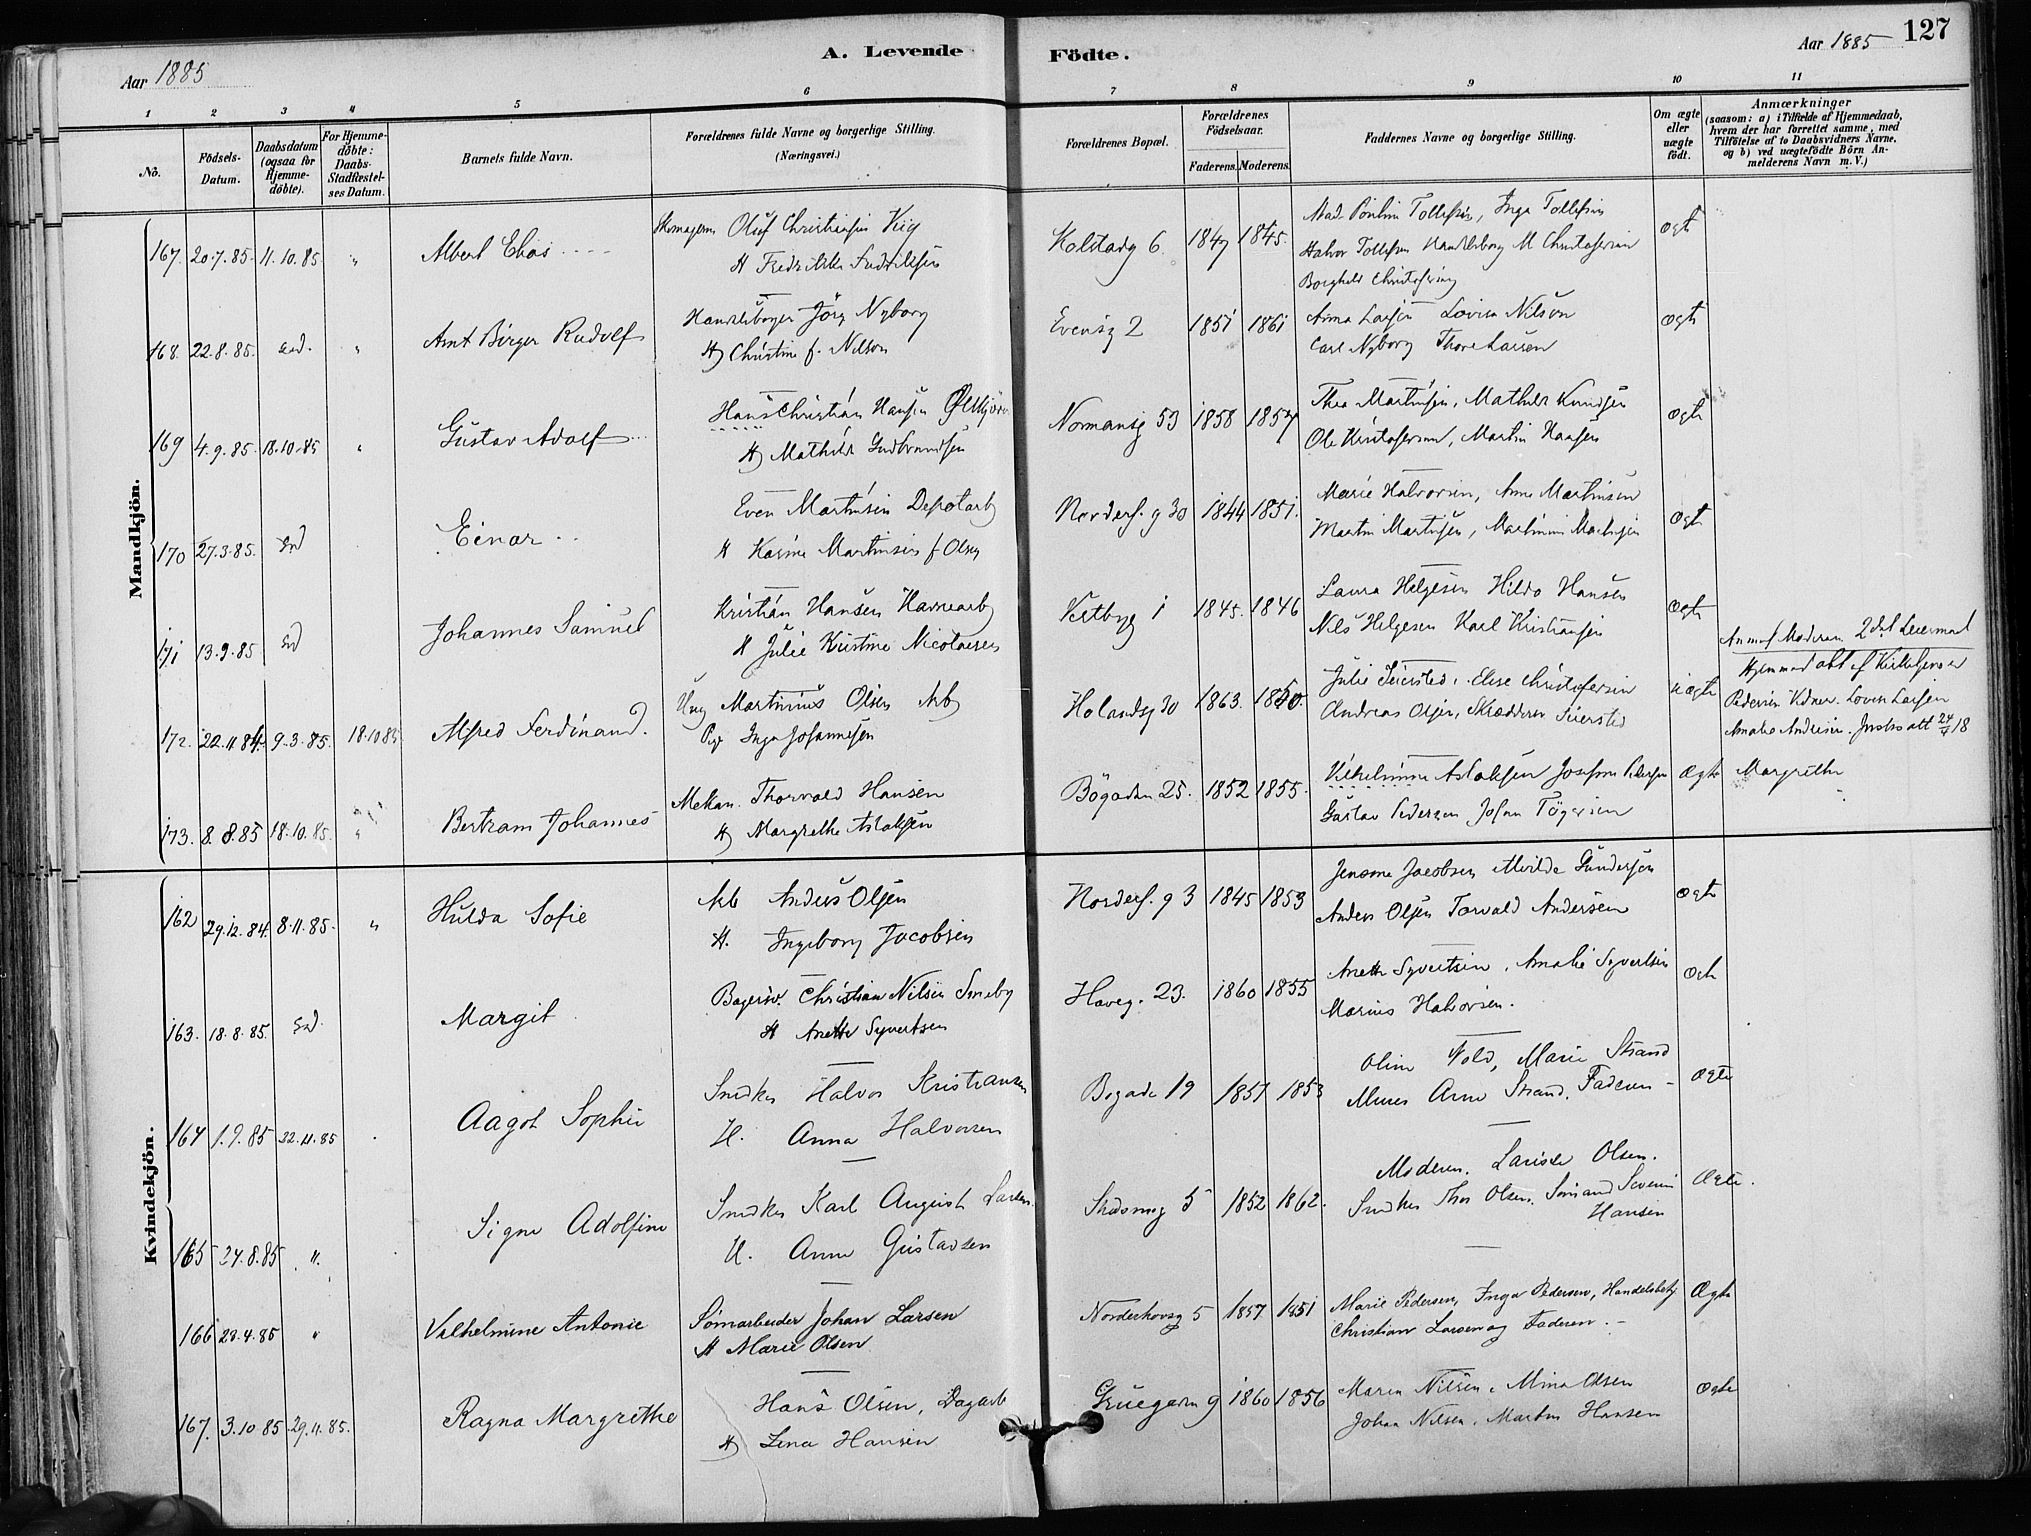 A. Levende Födte.
Aar 1885
Aar 1885 127
1 2 3 4 5 6 7 8 9 10 11
No.
Födsels-Datum.
Daabsdatum (ogsaa for Hjemme-döbte).
For Hjemme-döbte: Daabs-Stadfæstel-ses Datum.
Barnets fulde Navn.
Forældrenes fulde Navne og borgerlige Stilling. (Næringsvei.)
Forældrenes Bopæl.
Forældrenes Födselsaar.
Faderens. Moderens.
Faddernes Navne og borgerlige Stilling.
Om ægte eller uægte födt.
Anmærkninger
(saasom: a) i Tilfælde af Hjemmedaab, hvem der har forrettet samme, med Tilföielse af to Daabsvidners Navne, og b) ved uægtefödte Börn An-melderens Navn m. V.)
Mandkjön.
167. 20.7.85. 11.10.85. " Albert Elias Oluf Christiansen Kolstadg 6. 1847 1845. Tollefsen, Inga Tollefsen ægt
H Fredrikke Fredriksen Halvor Tollefsen
Borghild
168. 22.8.85. " Arnt Birger Rudolf Jörg Nyborg Evensg 2 1851 1861 Anna Lovisa Nilson ægte
H Christine f. Nilson Carl Nyborg Thore Larsen
169 4.9.85. 18.10.85 " Gustav Adolf Hans Christian Hansen Normansg 53 1858 1857 Thea Martinsen, Mathilde Knudsen ægte
H Mathilde Gudbrandsen Ole Kristofersen, Martin Hansen
170 27.3.85. Einar Even Martinsen Depotarb Norderh. g 30 1844 1851. Marie Halvorsen, Anne Martinsen ægt
H Karine Martinsen f Olsen Martin Martinsen,
171 13.9.85 Johannes Samuel Kristian Hansen Havnearb Vestbyg 1 1845. 1846 Laura Helgesen Hilda Hansen ægte
H Julie Kristine Nicolaisen Nils Helgesen Karl Kristiansen
172. 22.11.84. 9.3.85. 18.10.85 Alfred Ferdinand. Ung Martinius Olsen Arb Holandsg 20 1863. 1850. Julie Seiersted, Elise Christofersen uægte
Pige Inga Johannesen Andreas Olsen, Skrædder Seiersted
Moderen 2det
Lovise Larsen
Amalie
173. 8.8.85 18.10.85. " Bertram Johannes Mekan. Thorvald Hansen Bögaden 25. 1852 1855. Vilhelmine Aslaksen Josefine Pedersen ægte Margrethe
H Margrethe Aslaksen Gustav Pedersen Johan Tögersen
Kvindekjön.
162 29.12.84. 8.11.85. " Hulda Sofie Arb Anders Olsen Norderh. g 3 1845 1853 Jensine Jacobsen Gundersen ægte
H. Ingeborg Jacobsen Anders Olsen Torvald Andersen
163. 18.8.85. Margit Bagersv. Christian Nilsen Smeby Haveg. 23. 1860 1855 Anette Syvertsen, Amalie Syvertsen ægte
H Anette Syvertsen Marius Halvorsen.
164 1.9.85 22.11.85 Aagot Sophie Snedker Halvor Kristiansen Bogade 19 1851 1853 Oline Vold, Marie Strand ægte
H. Anna Halvorsen Murer Arne Strand. Faderen -
165 24.8.85 ". Signe Adolfine Snedker Karl August Larsen 5 1852 1862. Moderen. Olsen. ægte.
H. Anna Gustavsen Snedker Thor Olsen, Sömand Severin Hansen
166 23.4.85 " Vilhelmine Antonie Sömarbeider Johan Larsen Norderhovsg 5 1857 1851 Marie Pedersen, Inga Pedersen, Handelsbetj ægte
H Marie Olsen Christian Larsen og Faderen. -
167. 3.10.85 29.11.85. Ragna Margrethe Hans Olsen, Dagarb 9 1860 1856 Maren Nilsen, Mina Olsen ægte
H Lena Hansen Johan Nilsen, Martin Hansen